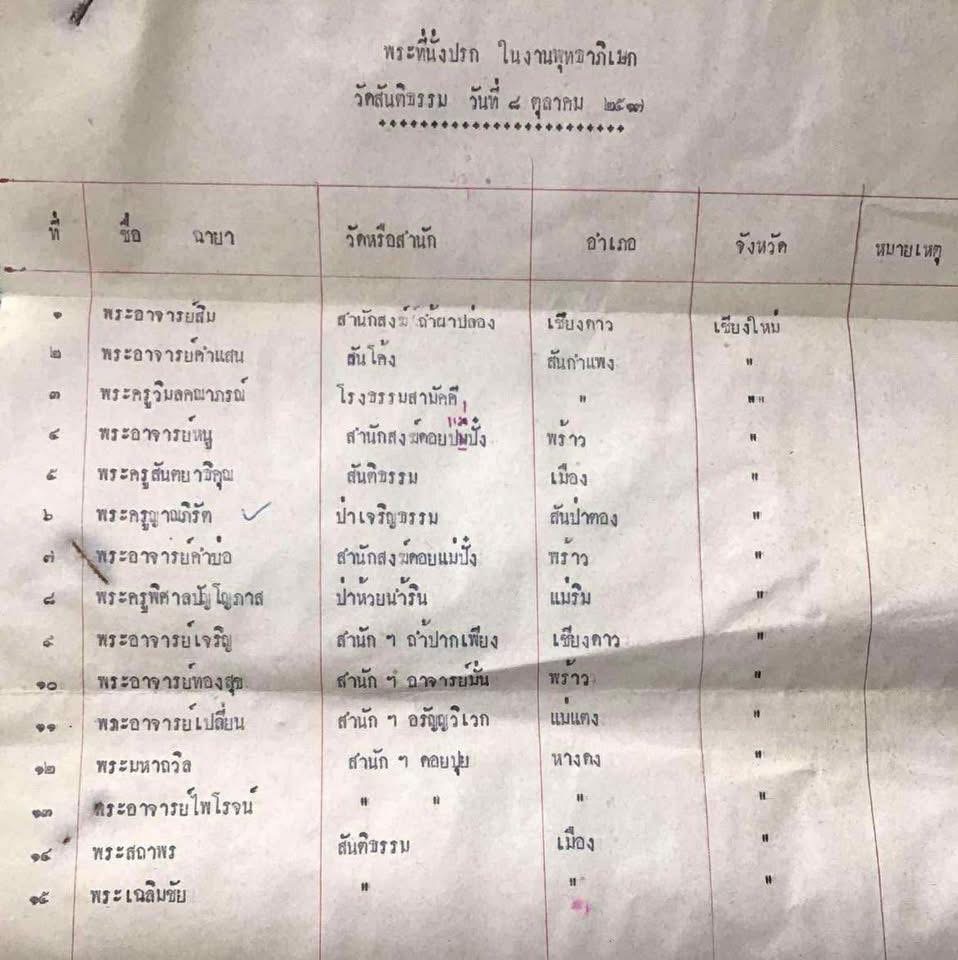 พระที่นั่งปรก ในงานพุทธาภิเษก
วัดสันติธรรม วันที่ ๘ ตุลาคม ๒๕๑๗
ที่ ชื่อ ฉายา วัดหรือสำนัก อำเภอ จังหวัด หมายเหตุ
๑ พระอาจารย์สิม สำนักสงฆ์ถ้ำผาปล่อง เชียงดาว เชียงใหม่
๒ พระอาจารย์คำแสน สันโค้ง สันกำแพง "
๓ พระครูวิมลคณาภรณ์ โรงธรรมสามัคคี " "
๔ พระอาจารย์หนู สำนักสงฆ์ดอยแม่ปั๋ง พร้าว "
๕ พระครูสันตยาธิคุณ สันติธรรม เมือง "
๖ พระครูญาณภิรัต ป่าเจริญธรรม สันป่าตอง "
๗ พระอาจารย์คำบ่อ สำนักสงฆ์ดอยแม่ปั๋ง พร้าว "
๘ พระครูพิศาลปัญโญภาส ป่าห้วยน้ำริน แม่ริม "
๙ พระอาจารย์เจริญ สำนัก ฯ ถ้ำปากเพียง เชียงดาว "
๑๐ พระอาจารย์ทองสุข สำนัก ฯ อาจารย์มั่น พร้าว "
๑๑ พระอาจารย์เปลี่ยน สำนัก ฯ อรัญญวิเวก แม่แตง "
๑๒ พระมหาถวิล สำนัก ฯ ดอยปุย หางดง "
๑๓ พระอาจารย์ไพโรจน์ " " " "
๑๔ พระสถาพร สันติธรรม เมือง "
๑๕ พระเฉลิมชัย " " "